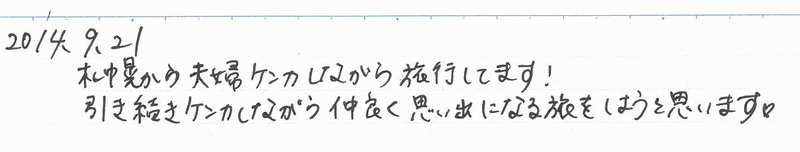 2014. 9. 21
札幌から夫婦ケンカしながら旅行してます!
引き続きケンカしながら仲良く思い出になる旅をしようと思います。